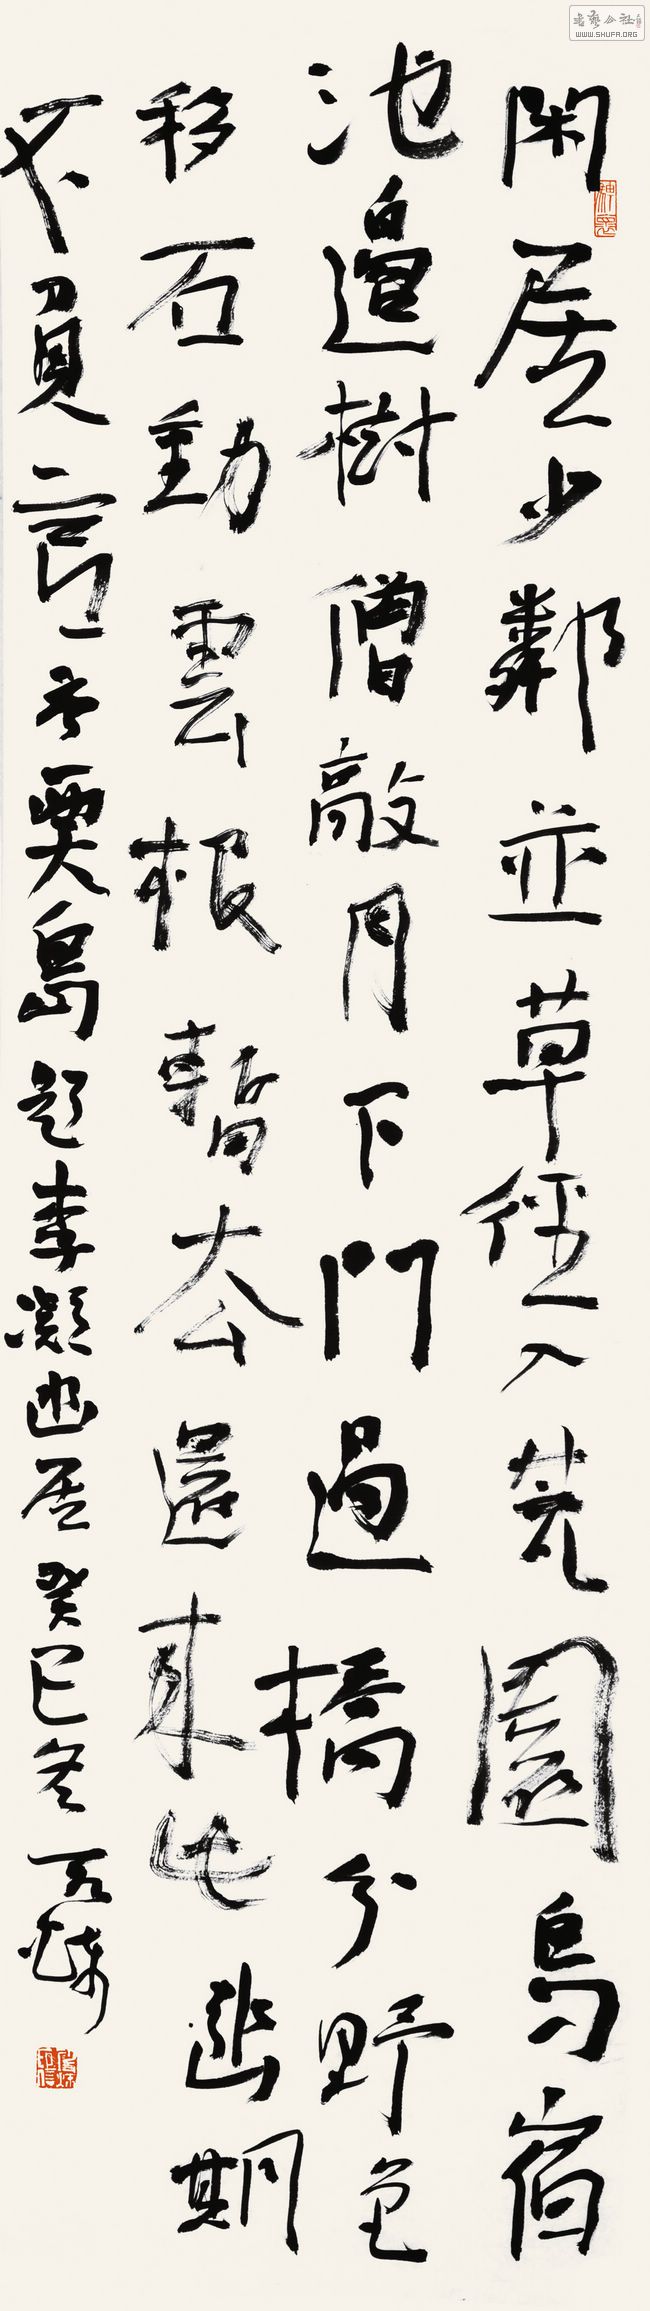 書藝公社
WWW.SHUFA.ORG
閑居少鄰並草徑入荒園鳥宿
池邊樹僧敲月下門過橋分野色
移石動雲根暫去還來此幽期
不負言 賈島題李凝幽居癸巳冬